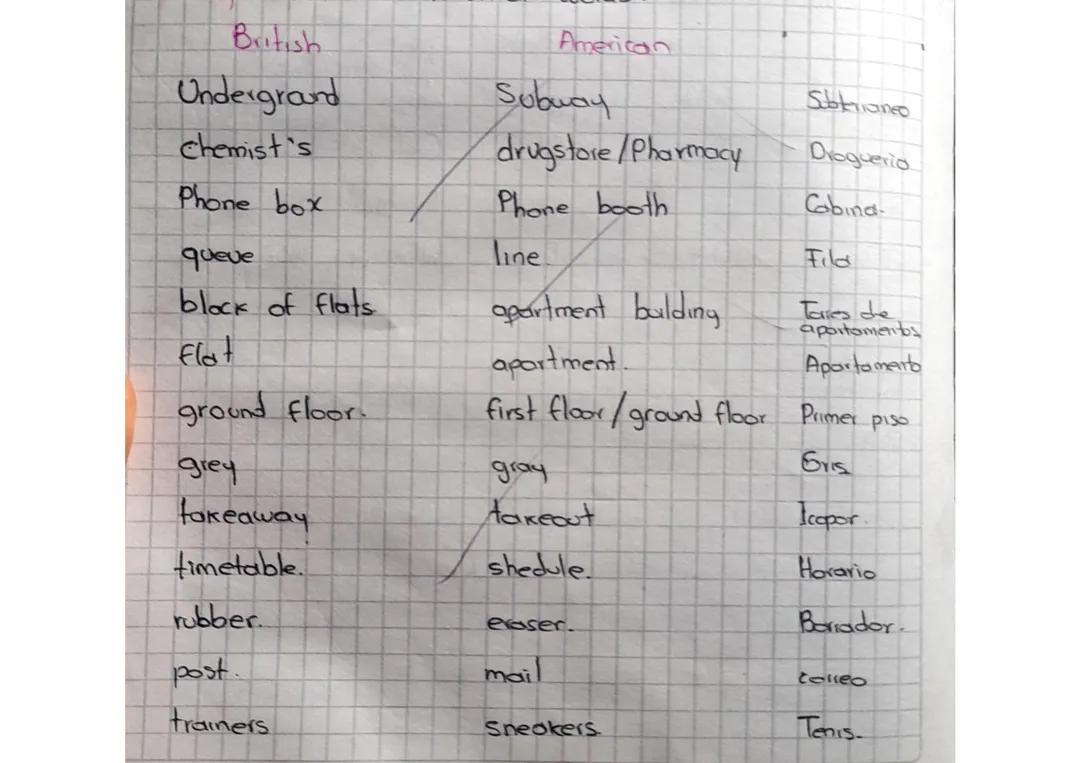 British American
Underground Subway Subterraneo
chemist's drugstore/Pharmacy Drogueria
Phone box Phone booth Cabina.
queue line. Fila
block of flats apartment bulding Torres de
apartamentos
flat apartment. Apartamento
ground floor. first floor/ground floor Primer piso
grey gray Gris
takeaway takeout Icopor.
timetable. shedule. Horario
rubber. eraser. Borrador.
post. mail correo
trainers sneakers. Tenis.